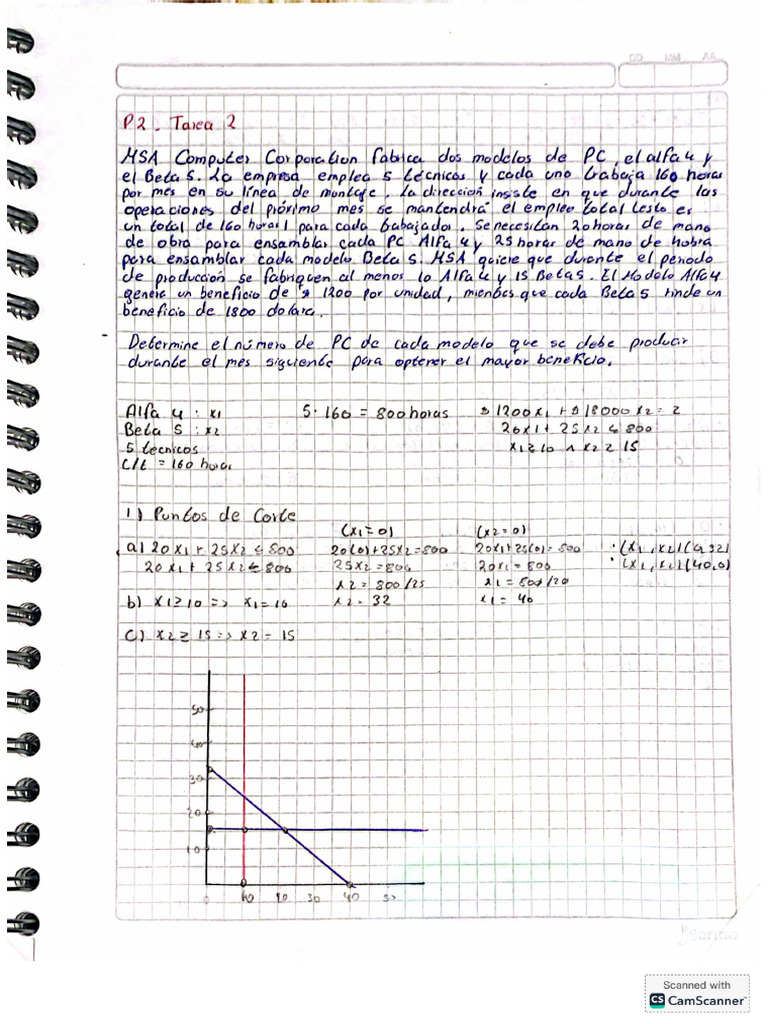 DD MM AA
P2 - Tarea 2
MSA Computer Corporation fabrica dos modelos de PC, el alfa 4 y
el Beta 5. La empresa emplea 5 técnicos y cada uno trabaja 160 horas
por mes en su línea de montaje. La dirección insiste en que durante las
operaciones del próximo mes se mantendrá el empleo total (esto es
un total de 160 horas) para cada trabajador. Se necesitan 20 horas de mano
de obra para ensamblar cada PC Alfa 4 y 25 horas de mano de hobra
para ensamblar cada modelo Beta 5. MSA quiere que durante el periodo
de producción se fabriquen al menos 10 Alfa 4 y 15 Beta 5. El Modelo Alfa 4
genera un beneficio de $ 1200 por unidad, mientes que cada Beta 5 rinde un
beneficio de 1800 dolara.
Determine el número de PC de cada modelo que se debe producir
durante el mes siguiente para optener el mayor beneficio.
Alfa 4 : x1 5 · 160 = 800 horas $ 1200x1 + $ 18000x2 = z
Beta 5 : x2 20x1 + 25x2 ≤ 800
5 tecnicos x1 ≥ 10 ∧ x2 ≥ 15
C/t = 160 horas
1) Puntos de Corte
(x1=0) (x2=0)
a) 20x1 + 25x2 ≤ 800 20(0)+25x2=800 20x1+25(0)=800 · (x1,x2)(0,32)
20x1 + 25x2 = 800 25x2=800 20x1=800 · (x1,x2)(40,0)
x2 = 800/25 x1=800/20
b) x1≥10 => x1=10 x2=32 x1=40
c) x2≥15 => x2=15
50
40
30
20
10
0 10 20 30 40 50
Norma
Scanned with
CS CamScanner